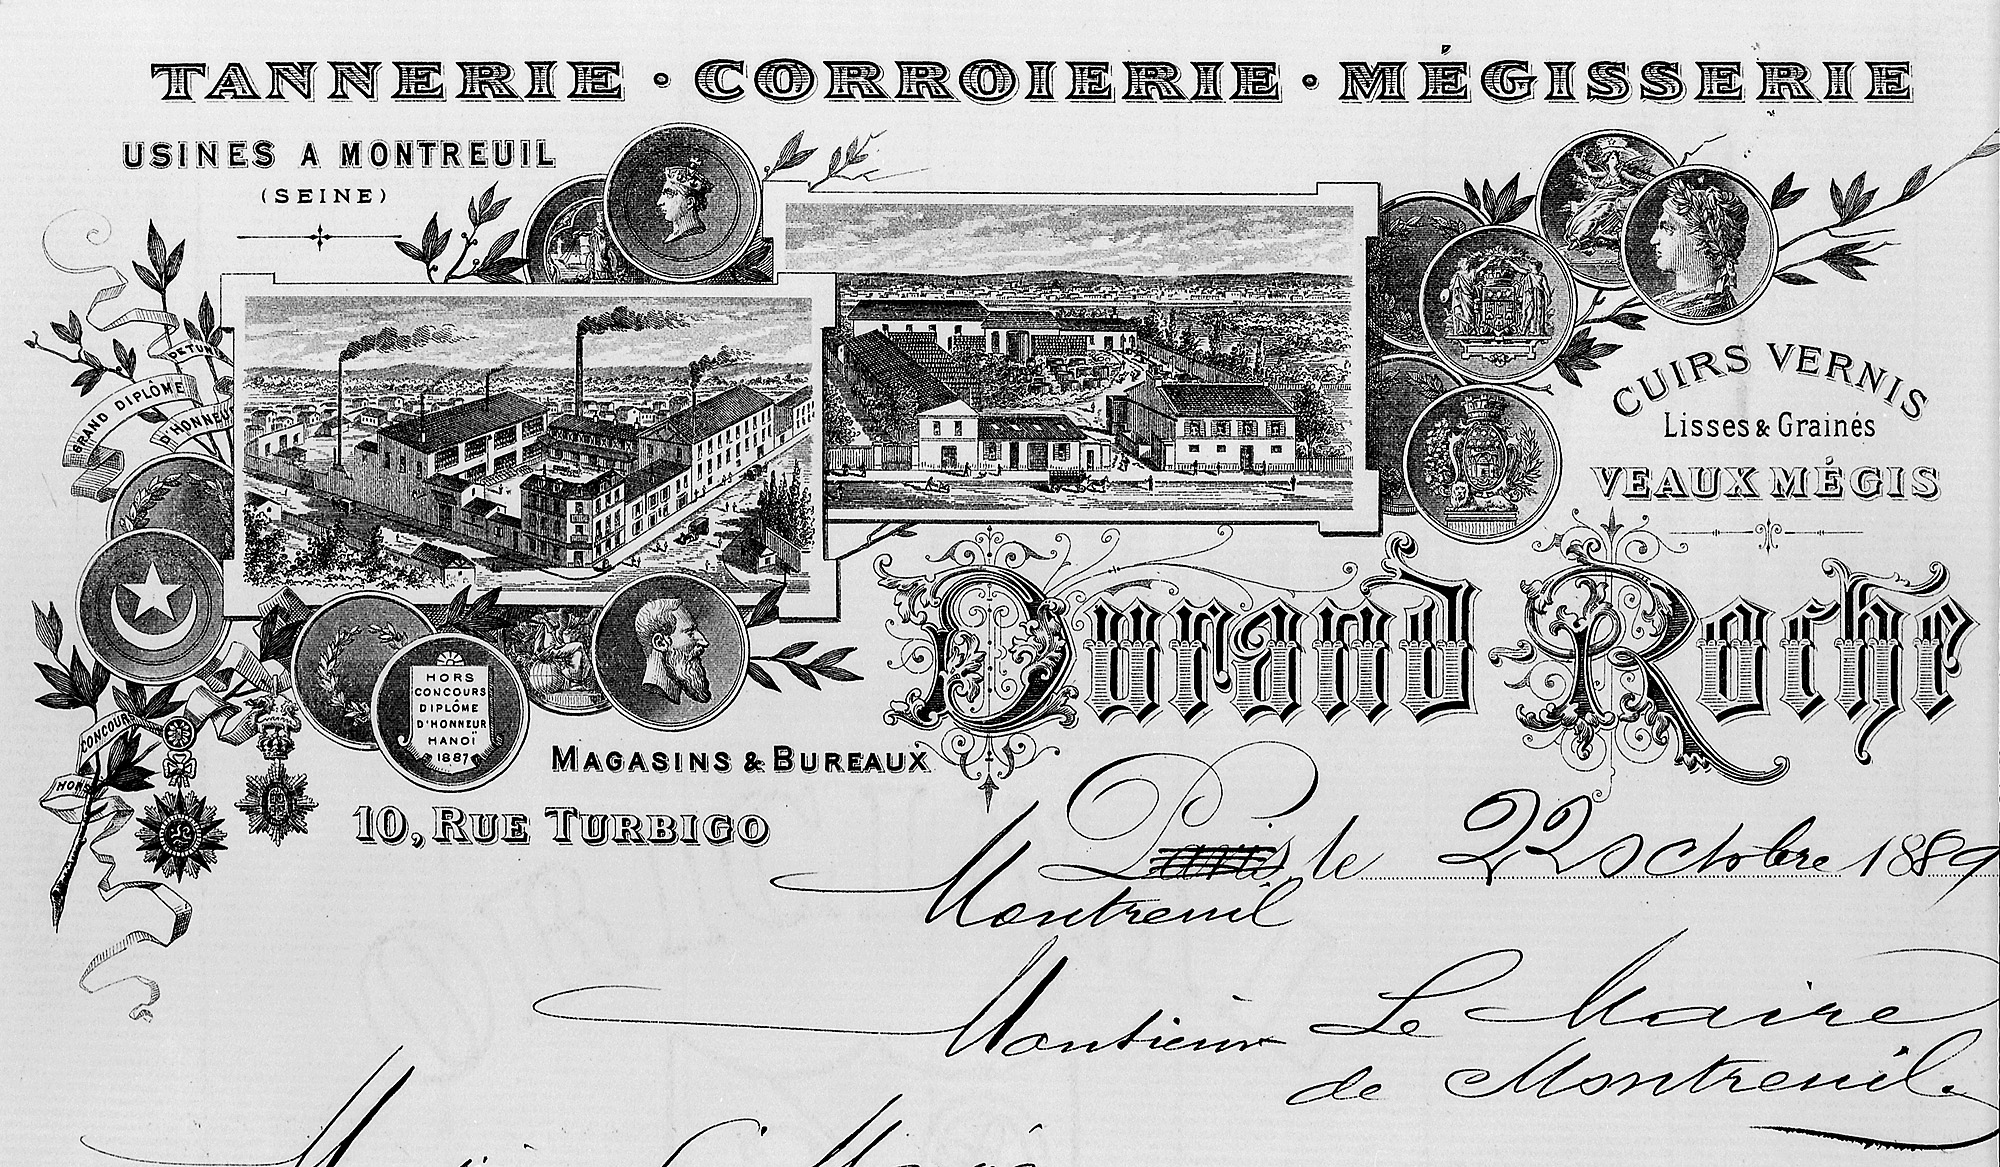 TANNERIE · CORROIERIE · MÉGISSERIE
USINES A MONTREUIL
(SEINE)
GRAND DIPLÔME
D'HONNEUR
CUIRS VERNIS
Lisses & Grainés
VEAUX MÉGIS
Durand Roche
HORS
CONCOURS
DIPLÔME
D'HONNEUR
HANOÏ
1887
CONCOURS
HORS
MAGASINS & BUREAUX
10, RUE TURBIGO
Paris le 22 Octobre 1889
Montreuil
Monsieur Le Maire
de Montreuil